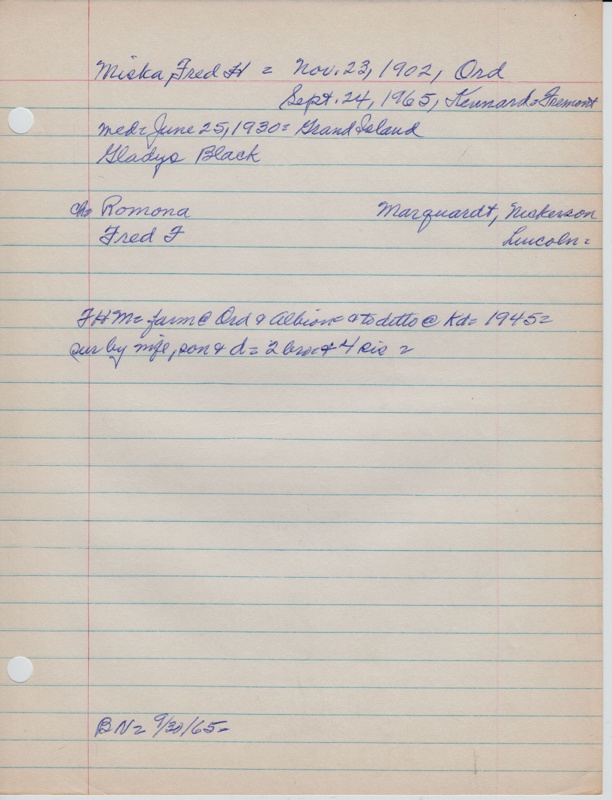 Miska, Fred H = Nov. 23, 1902, Ord
Sept. 24, 1965, Kennard = Fremont
med = June 25, 1930 = Grand Island
Gladys Black
ch = Romona Marquardt, Nickerson
Fred F Lincoln =
FHM = farm @ Ord & Albion = & to ditto @ Kd = 1945 =
sur by wife, son & d = 2 bro & 4 sis =
BN = 9/30/65 =